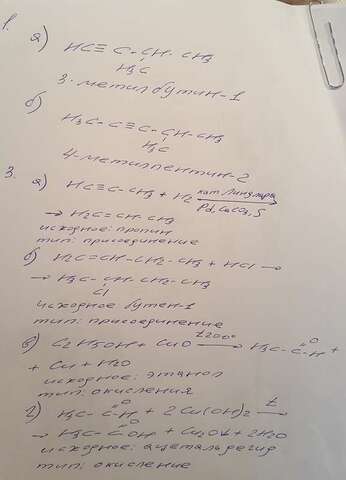 1.
а) HC≡C-CH-CH3
H3C
3-метилбутин-1
б)
H3C-C≡C-CH-CH3
H3C
4-метилпентин-2
3.
а) HC≡C-CH3 + H2 кат. Линдлара
Pd, CaCO3, S
→ H2C=CH-CH3
исходное: пропин
тип: присоединение
б) H2C=CH-CH2-CH3 + HCl →
→ H3C-CH-CH2-CH3
Cl
исходное бутен-1
тип: присоединение
в) C2H5OH + CuO t200° → H3C-C-H +
O
+ Cu + H2O
исходные: этанол
тип: окисления
г) H3C-C-H + 2Cu(OH)2 t →
O
→ H3C-C-OH + Cu2O↓ + 2H2O
O
исходное: ацетальдегид
тип: окисление